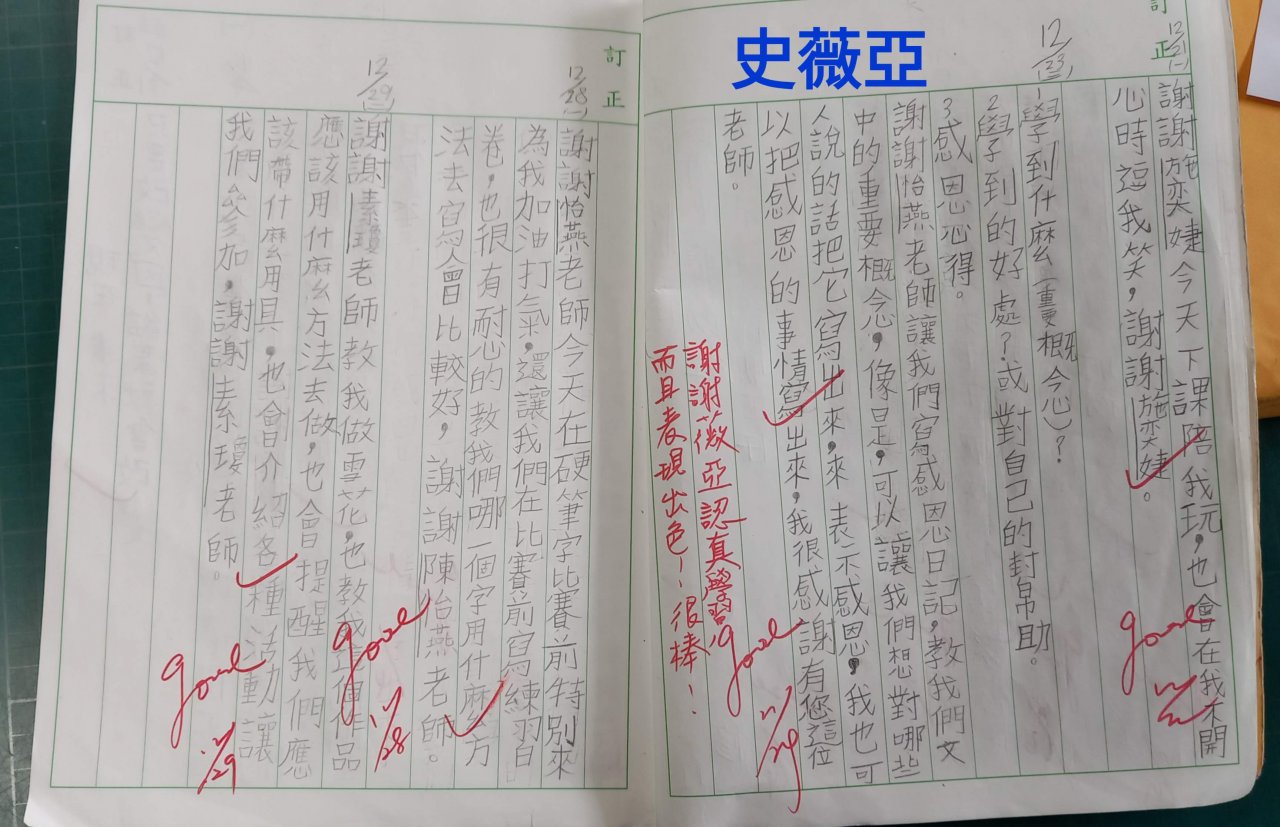 史薇亞
訂正
12/21(一)
謝謝施奕婕今天下課陪我玩,也會在我不開
心時逗我笑,謝謝施奕婕。
good
12/23(三)
1.學到什麼重要概念?
2.學到的好處?或對自己的封幫助。
3.感恩心得。
謝謝怡燕老師讓我們寫感恩日記,教我們文
中的重要概念,像是,可以讓我們想對哪些
人說的話把它寫出來,來表示感恩,我也可
以把感恩的事情寫出來,我很感謝有您這位
老師。
good
12/24
謝謝薇亞認真學習,
而且表現出色!很棒!
訂正
12/28(一)
謝謝怡燕老師今天在硬筆字比賽前特別來
為我加油打氣,還讓我們在比賽前寫練習
卷,也很有耐心的教我們哪一個字用什麼方
法去寫會比較好,謝謝陳怡燕老師。
good
12/28
12/29(二)
謝謝素瓊老師教我做雪花,也教我這個作品
應該用什麼方法去做,也會提醒我們應
該帶什麼用具,也會介紹各種活動讓
我們參加,謝謝素瓊老師。
good
12/29